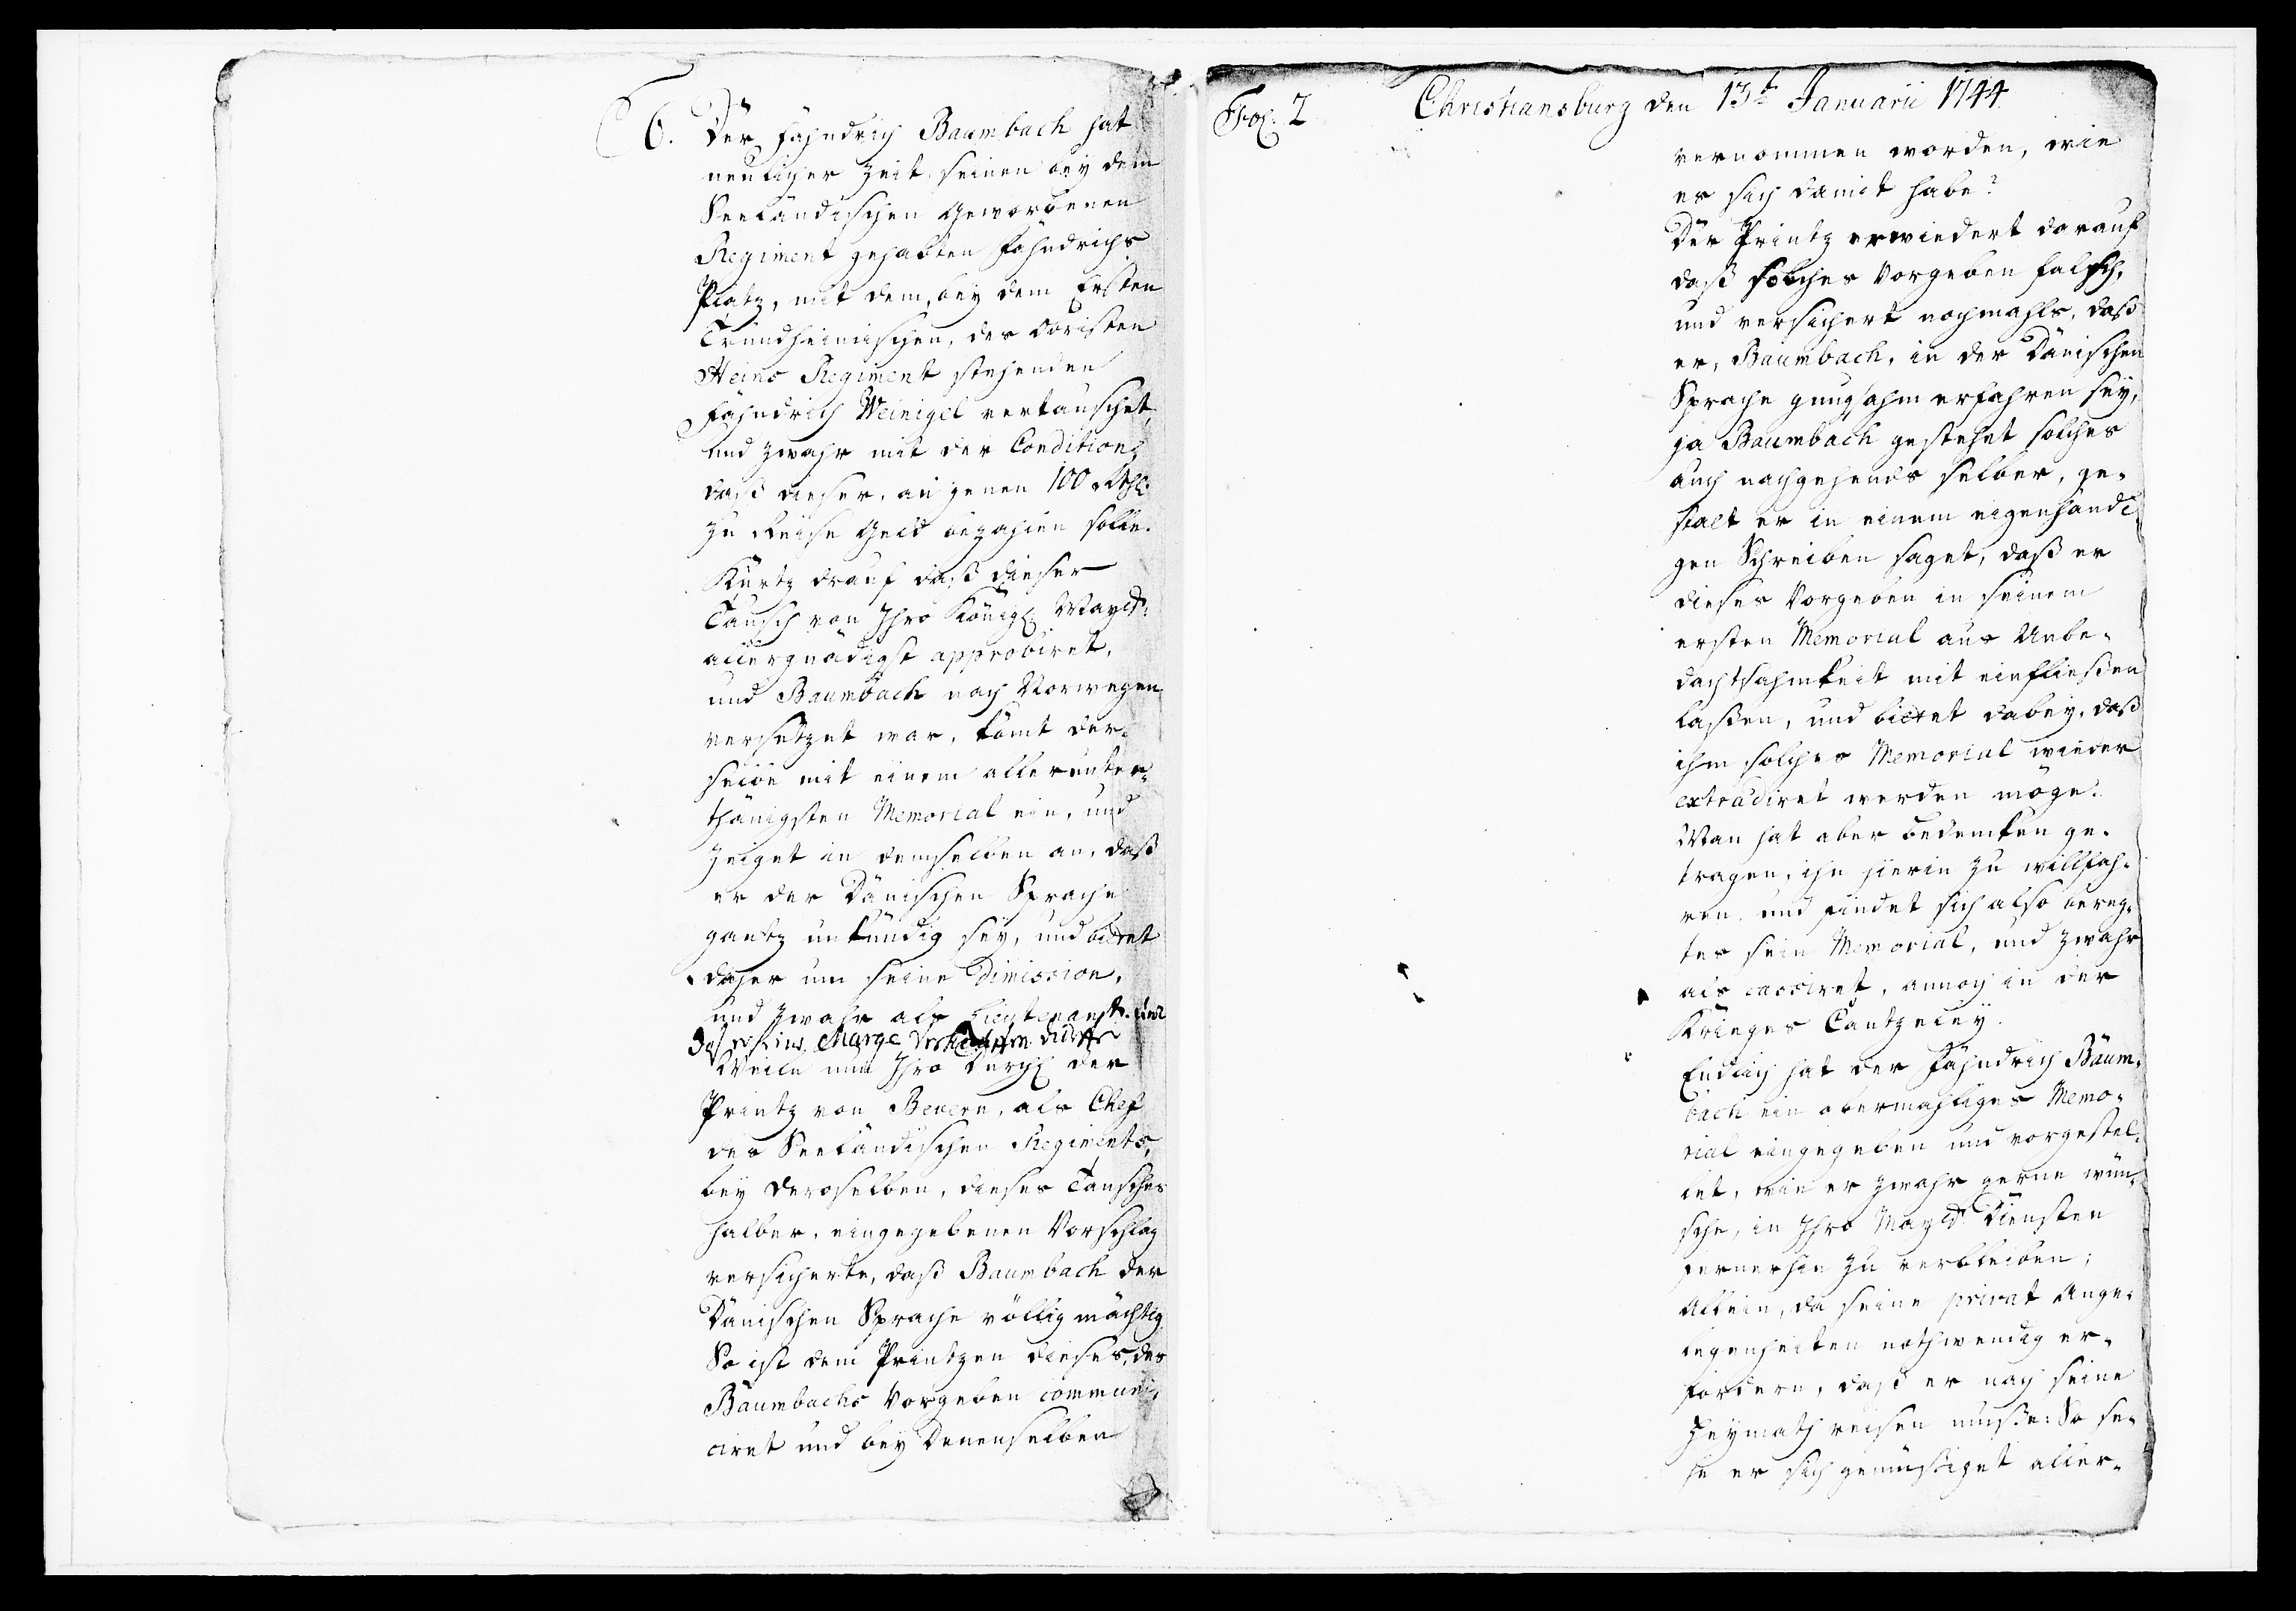 6. Der Fähndrich Baumbach hat
neulicher Zeit seinen bey dem
Seeländischen Geworbenen
Regiment gehabten Fähndrichs
Platz, mit dem, bey dem Ersten
Trundheimischen, des Obristen
Heins Regiment stehenden
Fähndrich Weinigel vertauschet,
und zwahr mit der Condition,
daß dieser, an jenen 100 Rthl:
zu Reise Geld bezahlen solle.
Kurtz drauf daß dieser
Tausch von Ihro Königl. Mayst:
allergnädigst approbiret,
und Baumbach nach Norwegen
versetzet war, kömt der-
selbe mit einem allerunter-
thänigsten Memorial ein, und
zeiget in demselben an, daß
er der Dänischen Sprache
gantz unkündig sey, und bittet
daher um seine Dimission,
und zwahr als Lieutenant.
Charge
Weiln nun Ihro Durchl der
Printz von Bevern, als Chef
des Seeländischen Regiments,
bey Deroselben, dieses Tausches
halber, eingegebenen Vorschlag
versicherte, daß Baumbach der
Dänischen Sprache völlig mächtig
So ist dem Printzen dieses, des
Baumbachs Vorgeben communi-
ciret und bey Denenselben
Fol. 2 Christiansburg den 13t Januarii 1744
vernommen worden, wie
es sich damit habe?
Der Printz erwiedert darauf
daß solches Vorgeben falsch,
und versichert nochmahls, daß
er, Baumbach, in der Dänischen
Sprache gnugsahm erfahren sey,
ja Baumbach gestehet solches
auch nachgehends selber, ge-
stalt er in einem eigenhändi
gen Schreiben saget, daß er
dieses Vorgeben in seinem
ersten Memorial aus Unbe-
dachtsahmkeit mit einfließen
laßen, und bittet dabey, daß
ihm solches Memorial wieder
extradiret werden möge.
Man hat aber bedencken ge-
tragen, ihn hierin zu willfah-
ren, und findet sich also bereg-
tes sein Memorial, und zwahr
als cassiret, annoch in der
Krieges Cantzeley.
Endlich hat der Fähndrich Baum-
bach ein abermahliges Memo-
rial eingegeben und vorgestel-
let, wie er zwahr gerne wün-
sche, in Ihro Mayst Diensten
fernerhin zu verbleiben;
Allein, da seine privat Ange-
legenheiten nothwendig er-
fordern, daß er nach seine
Heymath reisen muße: So se-
he er sich gemüßiget aller-